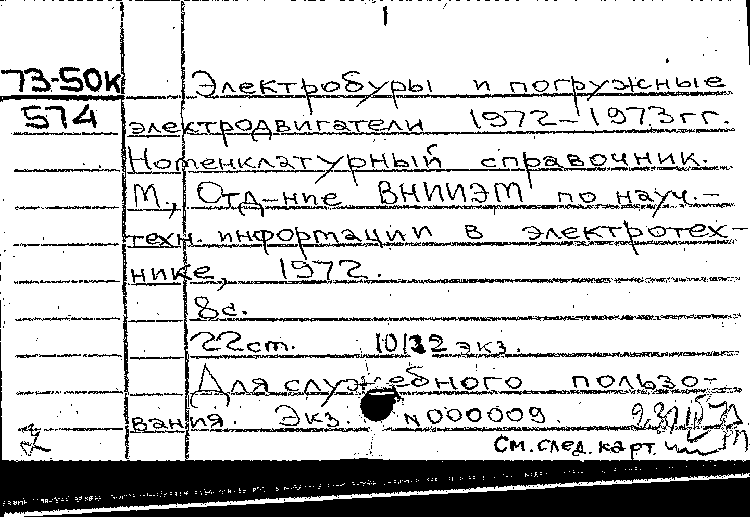 73-50к Электробуры и погружные
574 электродвигатели 1972-1973гг.
Номенклатурный справочник.
М., Отд-ние ВНИИЭМ по науч.-
техн. информации в электротех-
нике, 1972.
8с.
22см. 10132 экз.
Для служебного пользо-
вания. Экз. N000009.
См. след. карт.